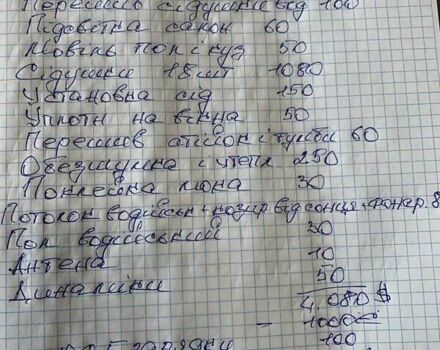 Перешив сідушки від 100
Підсвітка салон 60
Ковель пол і куз 50
Сідушки 18 шт 1080
Установка сід 150
Уплотн на вікна 50
Перешив стійок і тумби 60
Обезшумка і утепл 250
Поклейка люка 30
Потолок водійськ + козир від сонця + фонар. 8
Пол водійський 30
Антена 10
Динаміки 50
4.080 $
- 1000
100